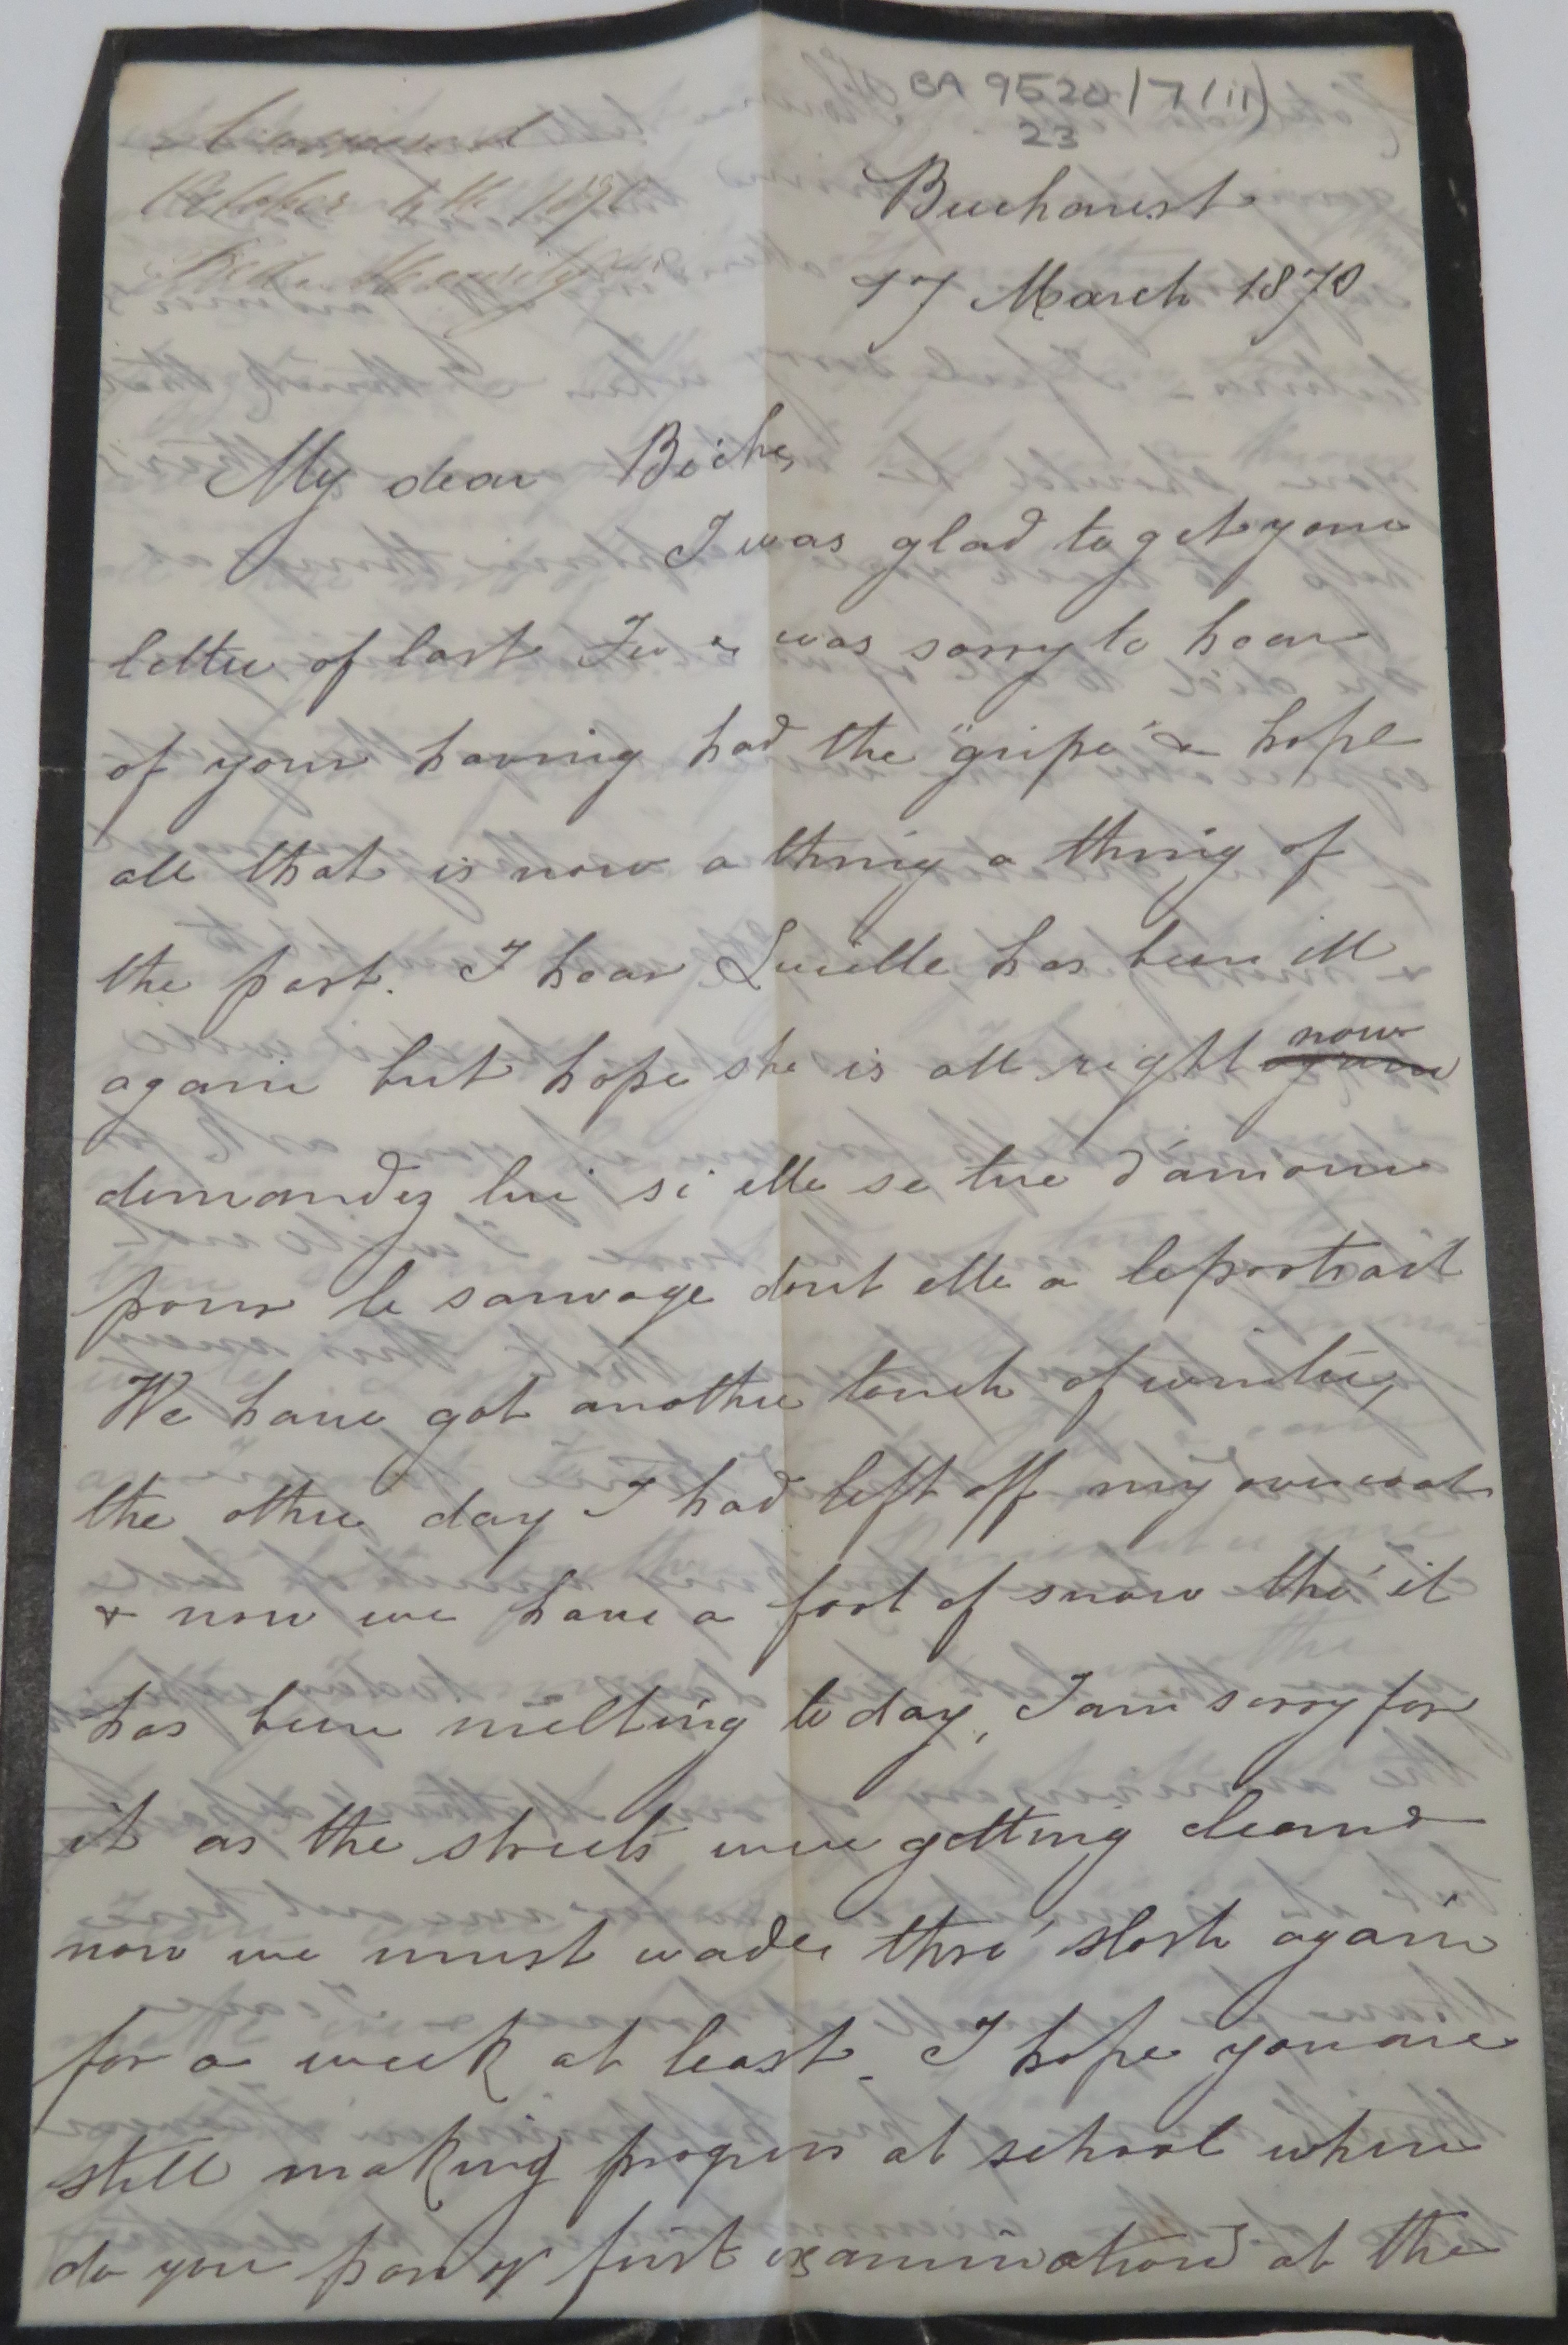 BA 9520/7/(ii)
23
October 4th 189
Bucharest
17 March 1870
My dear
I was glad to get your
letter of last & was sorry to hear
of your having had the "gripe" & hope
all that is now a thing a thing of
the past. I hear Lucille has been ill
again but hope she is all right now
again
demandez lui si elle se tue d'amour
pour le sauvage dont elle a le portrait
We have got another touch of winter,
the other day I had left off my overcoat
& now we have a foot of snow tho' it
has been melting to day, I am sorry for
it as the streets were getting clean &
now we must wade thro' slosh again
for a week at least. I hope you are
still making progress at school when
do you pass yr first examination at the